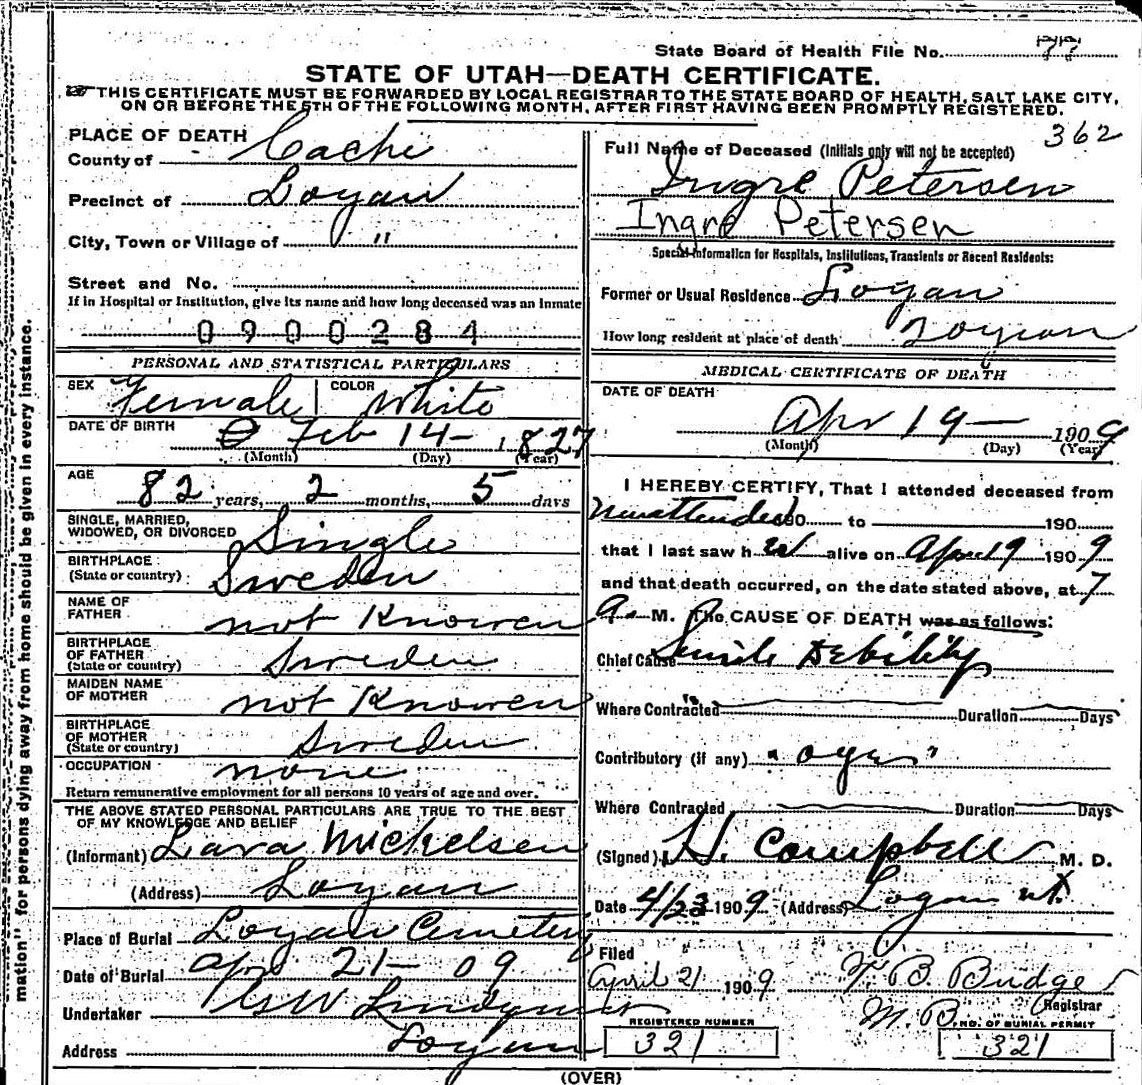 State Board of Health File No. 77
STATE OF UTAH—DEATH CERTIFICATE.
THIS CERTIFICATE MUST BE FORWARDED BY LOCAL REGISTRAR TO THE STATE BOARD OF HEALTH, SALT LAKE CITY,
ON OR BEFORE THE 5TH OF THE FOLLOWING MONTH, AFTER FIRST HAVING BEEN PROMPTLY REGISTERED.
362
PLACE OF DEATH
County of Cache
Precinct of Logan
City, Town or Village of "
Street and No.
If in Hospital or Institution, give its name and how long deceased was an Inmate
0900284
PERSONAL AND STATISTICAL PARTICULARS
SEX Female COLOR White
DATE OF BIRTH Feb 14— 1827
(Month) (Day) (Year)
AGE 82 years, 2 months, 5 days
SINGLE, MARRIED,
WIDOWED, OR DIVORCED Single
BIRTHPLACE
(State or country) Sweden
NAME OF
FATHER not Knowen
BIRTHPLACE
OF FATHER
(State or country) Sweden
MAIDEN NAME
OF MOTHER not Knowen
BIRTHPLACE
OF MOTHER
(State or country) Sweden
OCCUPATION none
Return remunerative employment for all persons 10 years of age and over.
THE ABOVE STATED PERSONAL PARTICULARS ARE TRUE TO THE BEST
OF MY KNOWLEDGE AND BELIEF
(Informant) Lara Mickelsen
(Address) Logan
Place of Burial Logan Cemetery
Date of Burial Apr 21— 09
Undertaker Lindquist
Address Logan
Full Name of Deceased (Initials only will not be accepted)
Ingre Petersen
Ingre Petersen
Special Information for Hospitals, Institutions, Transients or Recent Residents:
Former or Usual Residence Logan
How long resident at place of death Logan
MEDICAL CERTIFICATE OF DEATH
DATE OF DEATH
Apr 19— 1909
(Month) (Day) (Year)
I HEREBY CERTIFY, That I attended deceased from
unattended 190 to 190
that I last saw h er alive on Apr 19 1909
and that death occurred, on the date stated above, at 7
a. M. The CAUSE OF DEATH was as follows:
Chief Cause Senile Debility
Where Contracted Duration Days
Contributory (if any)
Where Contracted Duration Days
(Signed) H. Campbell M. D.
Date 4/23 1909 (Address) Logan Ut.
Filed
April 21 1909 T. B. Budge
Registrar
REGISTERED NUMBER
321
NO. OF BURIAL PERMIT
321
(OVER)
mation" for persons dying away from home should be given in every instance.